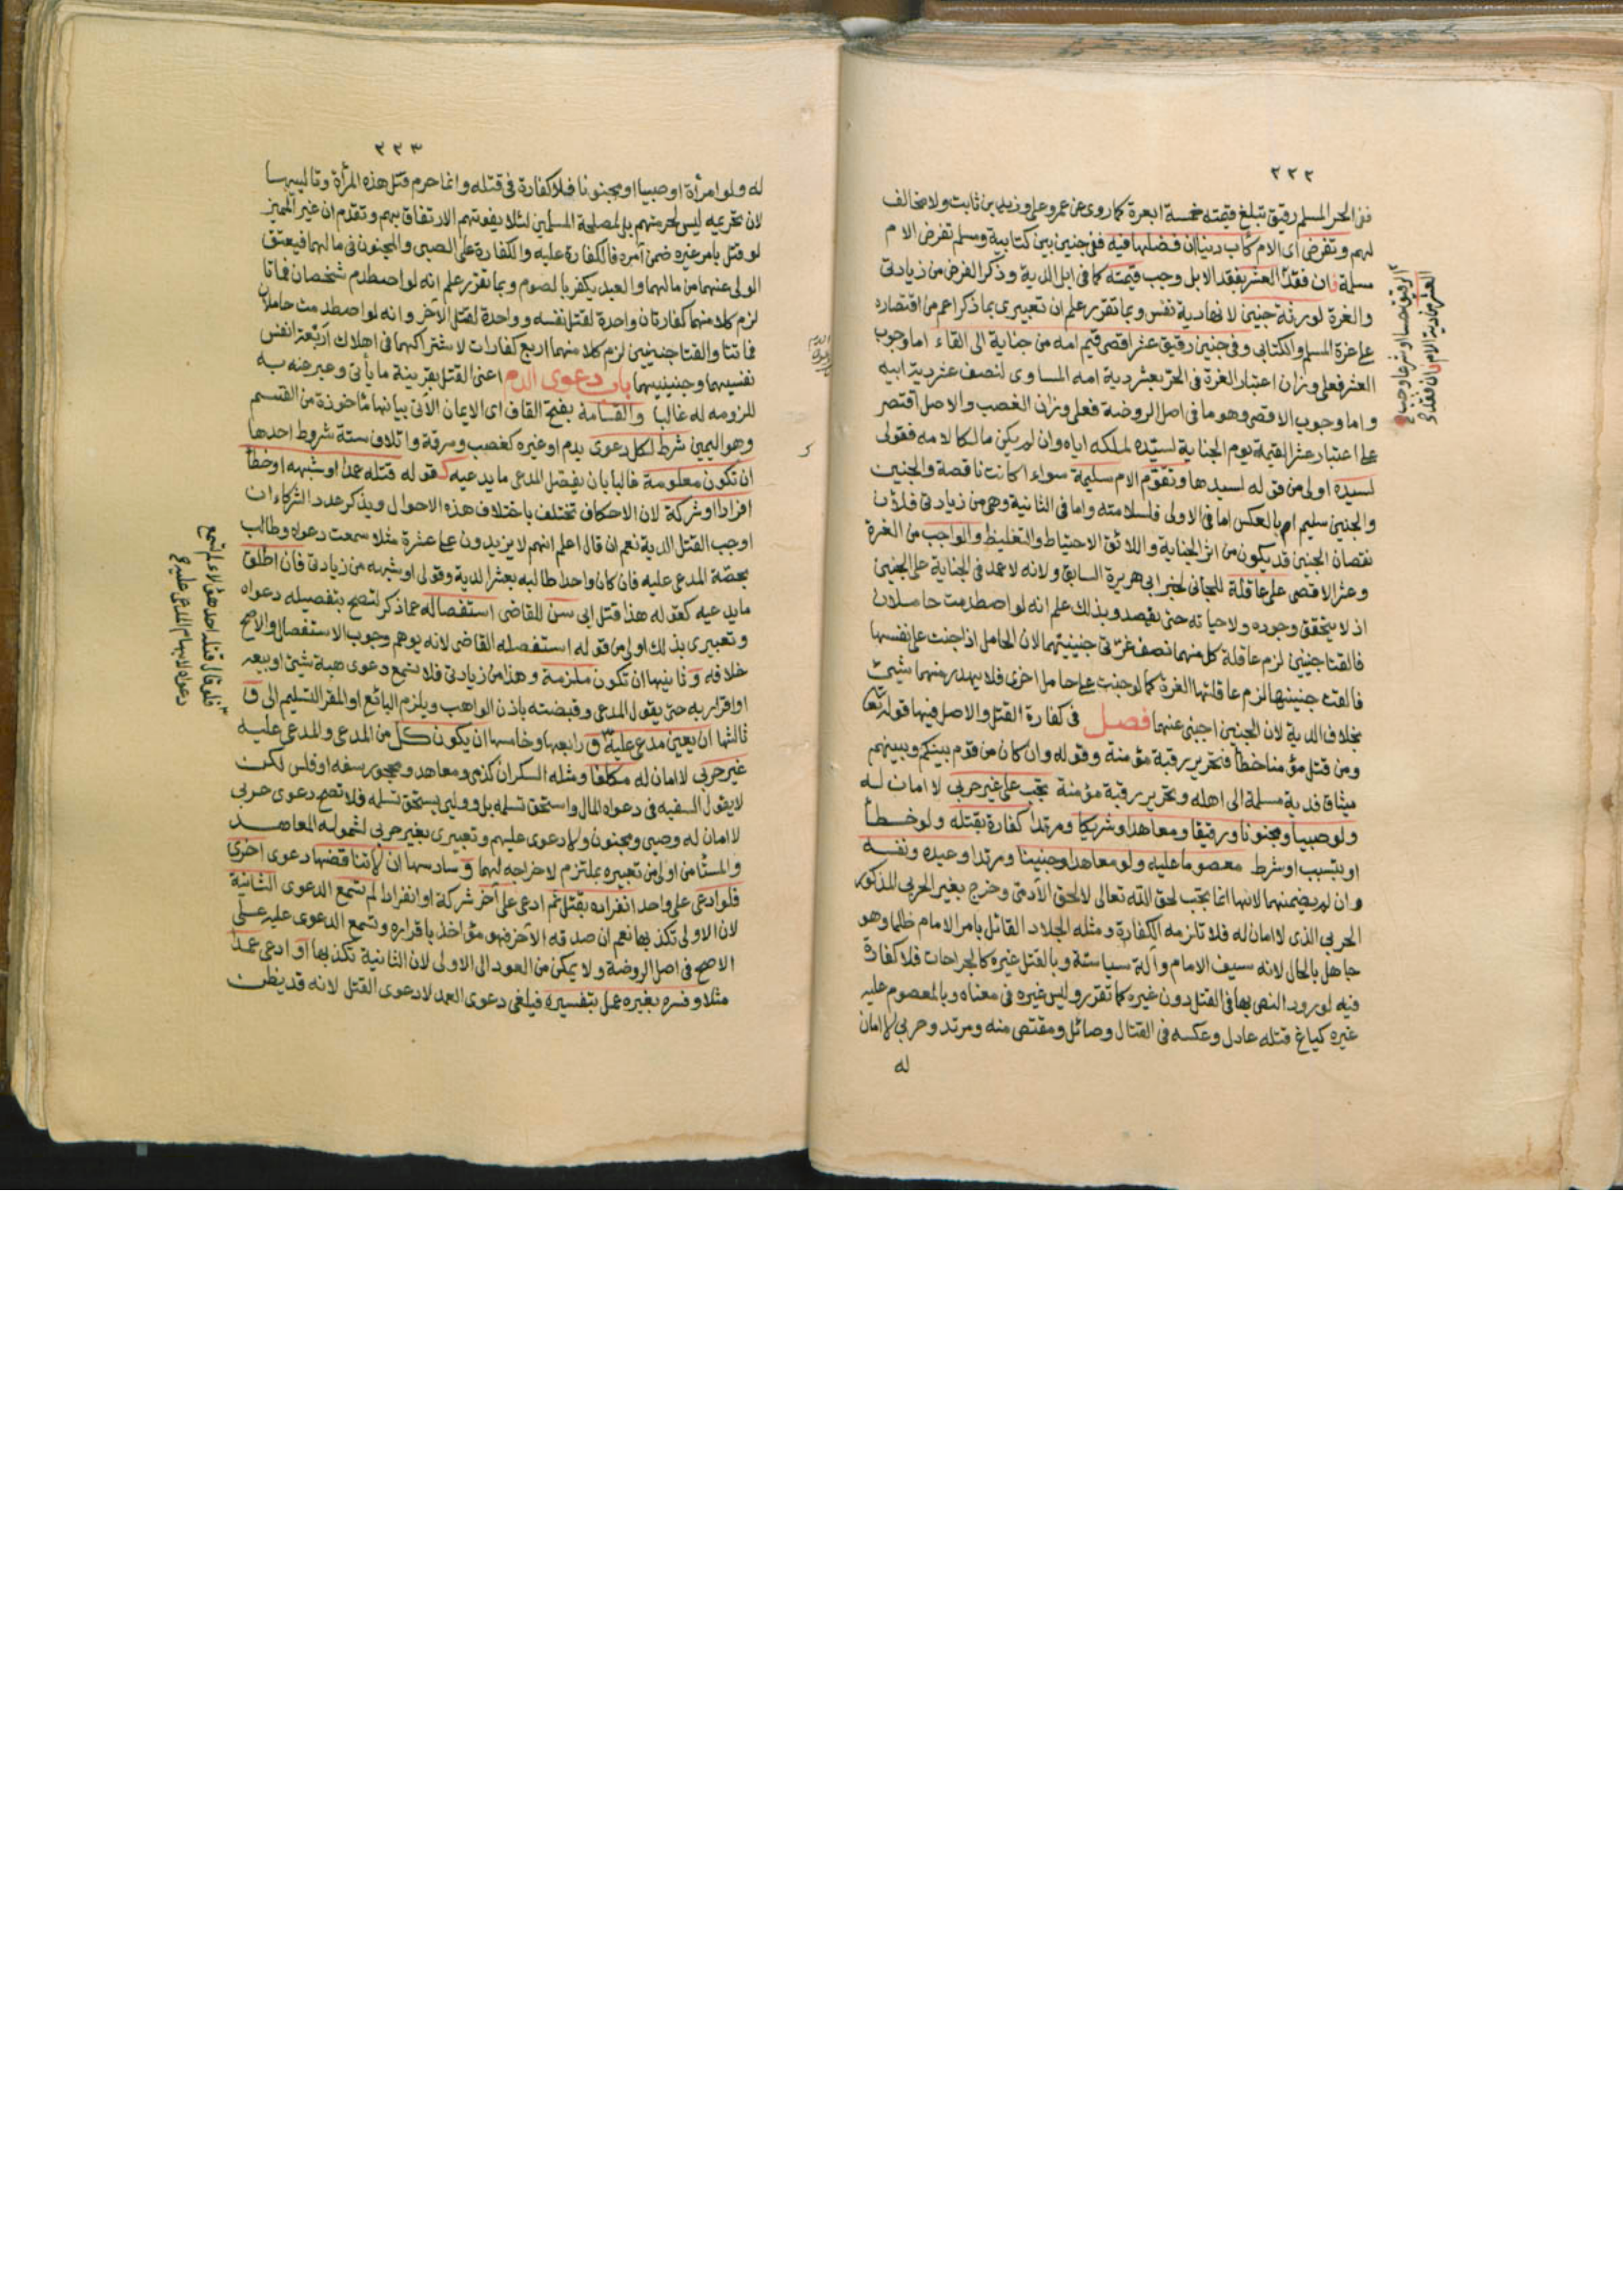 ٢٢٢
ففى الحر المسلم رقيق تبلغ قيمته خمسة ابعرة كما روى عن عمر وعلى وزيد بن ثابت ولا مخالف
لهم وتفرض اى الام كأب دينا ان فضلها فيه ففى جنين بين كتابية ومسلم تفرض الام
مسلمة فان فقد العشر بفقد الابل وجب قيمته كما فى ابل الدية وذكر الفرض من زيادتى
والغرة لورثة جنين لانها دية نفس وبما تقرر علم ان تعبيرى بما ذكر اعم من اقتصاره
على غرة المسلم والكتابى وفى جنين رقيق عشر اقصى قيم امه من جناية الى القاء اما وجوب
العشر فعلى وزان اعتبار الغرة فى الحر بعشر دية امه المساوى لنصف عشر دية ابيه
واما وجوب الاقصى وهو ما فى اصل الروضة فعلى وزان الغصب والاصل اقتصر
على اعتبار عشر القيمة يوم الجناية لسيده لملكه اياه وان لم يكن مالكا لامه فقولى
لسيده اولى من قوله لسيدها وتقوم الام سليمة سواء اكانت ناقصة والجنين
والجنين سليم ام بالعكس اما فى الاولى فلسلامته واما فى الثانية وهى من زيادتى فلان
نقصان الجنين قد يكون من اثر الجناية واللائق الاحتياط والتغليظ والواجب من الغرة
وعشر الاقصى على عاقلة للجانى لخبر ابى هريرة السابق ولانه لا عمد فى الجناية على الجنين
اذ لا يتحقق وجوده ولا حياته حتى يقصد وبذلك علم انه لو اصطدمت حاملان
فالقتا جنينين لزم عاقلة كل منهما نصف غرتى جنينيهما لان الحامل اذا جنت على نفسها
فالقت جنينها لزم عاقلتها الغرة كما لو جنت على حامل اخرى فلا يهدر منهما شيئ
بخلاف الدية لان الجنين اجنبى عنهما فصل فى كفارة القتل والاصل فيها قوله تعا
ومن قتل مؤمنا خطأ فتحرير رقبة مؤمنة وقوله وان كان من قوم بينكم وبينهم
ميثاق فدية مسلمة الى اهله وتحرير رقبة مؤمنة تجب على غير حربى لا امان له
ولو صبيا ومجنونا ورقيقا ومعاهدا وشريكا ومرتدا كفارة بقتله ولو خطأ
او بتسبب او شرط معصوما عليه ولو معاهدا وجنينا ومرتدا وعبده ونفسه
وان لم يضمنهما لانها انما تجب لحق الله تعالى لا لحق الآدمى وخرج بغير الحربى المذكور
الحربى الذى لا امان له فلا تلزمه الكفارة ومثله الجلاد القاتل بامر الامام ظلما وهو
جاهل بالحال لانه سيف الامام وآلة سياسته وبالقتل غيره كالجراحات فلا كفارة
فيه لورود النص بها فى القتل دون غيره كما تقرر وليس غيره فى معناه وبالمعصوم عليه
غيره كباغ قتله عادل وعكسه فى القتال وصائل ومقتص منه ومرتد وحربى لا امان
له
٢٢٣
له ولو امرأة او صبيا او مجنونا فلا كفارة فى قتله وانما حرم قتل هذه المرأة وتالييها
لان تحريمه ليس لحرمتهم بل لمصلحة المسلمين لئلا يفوتهم الارتفاق بهم وتقدم ان غير المميز
لو قتل بامر غيره ضمن آمره فالكفارة عليه والكفارة على الصبى والمجنون فى مالهما فيعتق
الولى عنهما من مالهما والعبد يكفر بالصوم وبما تقرر علم انه لو اصطدم شخصان فماتا
لزم كلا منهما كفارتان واحدة لقتل نفسه وواحدة لقتل الآخر وانه لو اصطدمت حاملان
فماتتا والقتا جنينين لزم كلا منهما اربع كفارات لاشتراكهما فى اهلاك اربعة انفس
نفسيهما وجنينيهما باب دعوى الدم اعنى القتل بقرينة ما يأتى وعبر عنه به
للزومه له غالبا والقسامة بفتح القاف اى الايمان الآتى بيانها مأخوذة من القسم
وهو اليمين شرط لكل دعوى بدم او غيره كغصب وسرقة واتلاف ستة شروط احدها
ان تكون معلومة غالبا بان يفصل المدعى ما يدعيه كقوله قتله عمدا او شبهه او خطأ
افرادا او شركة لان الاحكام تختلف باختلاف هذه الاحوال ويذكر عدد الشركاء ان
اوجب القتل الدية نعم ان قال اعلم انهم لا يزيدون على عشرة مثلا سمعت دعواه وطالب
بحصة المدعى عليه فان كان واحدا طالبه بعشر الدية وقولى او شبهه من زيادتى فان اطلق
ما يدعيه كقوله هذا قتل ابى سن للقاضى استفصاله عما ذكر لتصح بتفصيله دعواه
وتعبيرى بذلك اولى من قوله استفصله القاضى لانه يوهم وجوب الاستفصال والاصح
خلافه وثانيها ان تكون ملزمة وهذا من زيادتى فلا تسمع دعوى هبة شيئ او بيعه
او اقرار به حتى يقول المدعى وقبضته باذن الواهب ويلزم البائع او المقر التسليم الى و
ثالثها ان يعين مدعى عليه و رابعها وخامسها ان يكون كل من المدعى والمدعى عليه
غير حربى لا امان له مكلفا ومثله السكران كذمى ومعاهد ومحجور سفه او فلس لكن
لا يقول السفيه فى دعواه المال واستحق تسلمه بل وولى يستحق تسلمه فلا تصح دعوى حربى
لا امان له وصبى ومجنون ولا دعوى عليهم وتعبيرى بغير حربى لشموله المعاهد
والمستأمن اولى من تعبيره بملتزم لاخراجه لهما وسادسها ان لا تناقضها دعوى اخرى
فلو ادعى على واحد انفراده بقتل ثم ادعى على آخر شركة او انفرادا لم تسمع الدعوى الثانية
لان الاولى تكذبها نعم ان صدقه الآخر فهو مؤاخذ باقراره وتسمع الدعوى عليه على
الاصح فى اصل الروضة ولا يمكن من العود الى الاولى لان الثانية تكذبها او ادعى عمدا
مثلا وفسره بغيره عمل بتفسيره فيلغى دعوى العمد لا دعوى القتل لانه قد يظن
فلو قال قتله احد هؤلاء لم تسمع
دعواه لابهام المدعى عليه